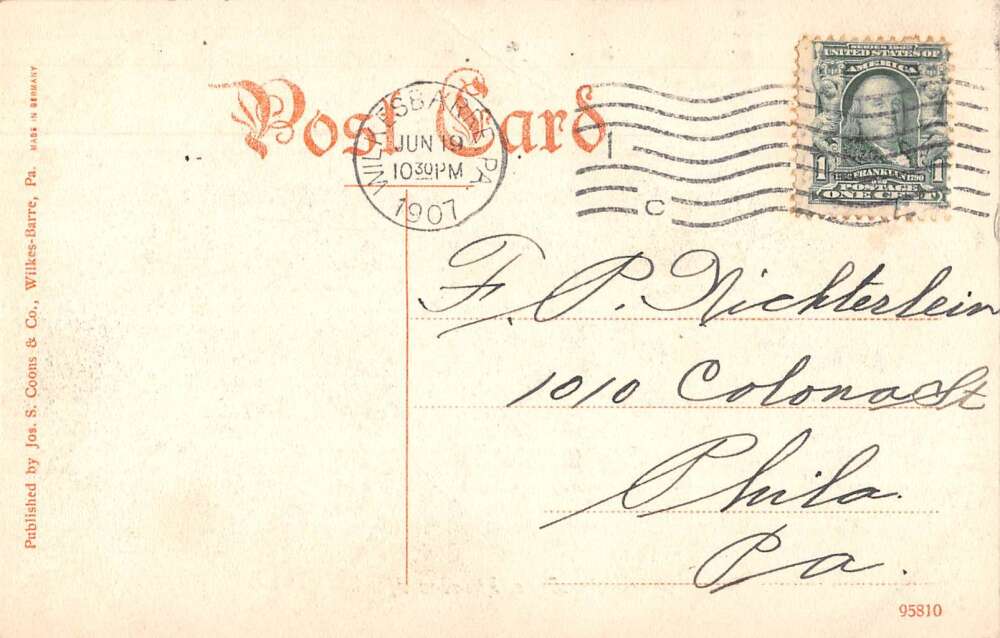 Post Card
WILKESBARRE, PA.
JUN 19
10 30 PM
1907
1
C
SERIES 1902
UNITED STATES OF
AMERICA
1 FRANKLIN 1790 1
POSTAGE
ONE CENT
F. P. Nichterlein
1010 Colona St
Phila.
Pa.
95810
Published by Jos. S. Coons & Co., Wilkes-Barre, Pa. MADE IN GERMANY